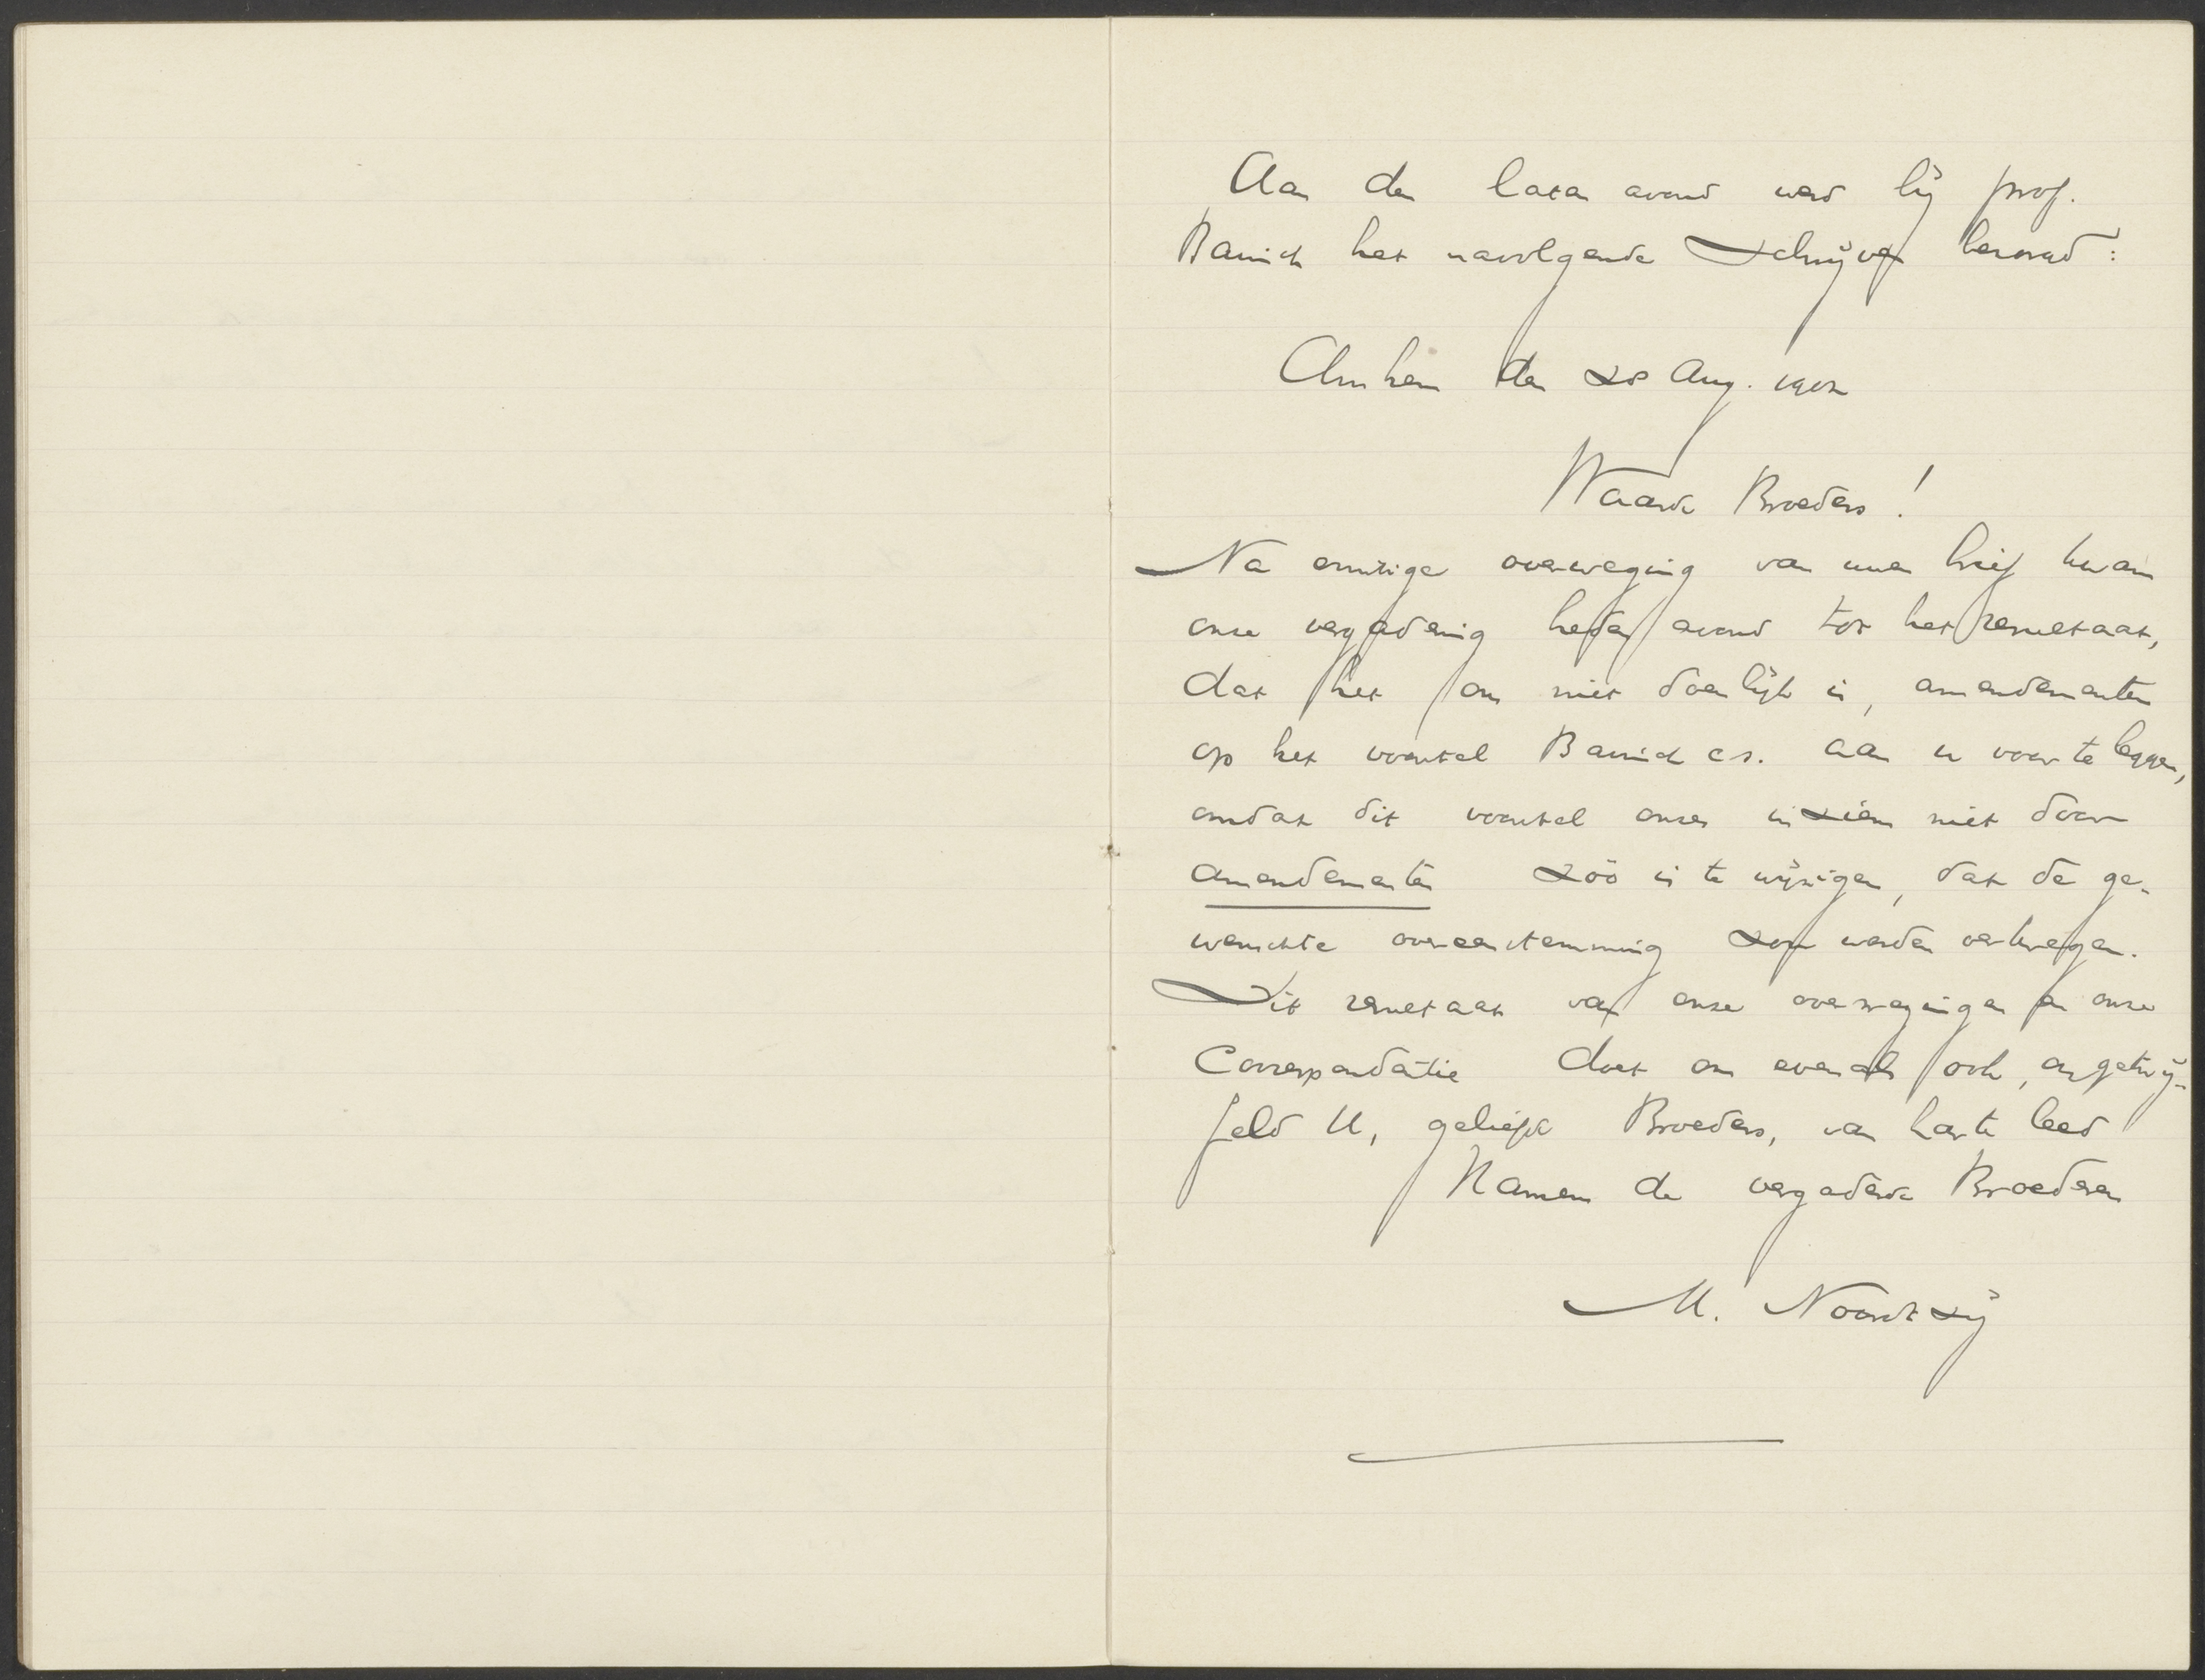 Aan den laten avond werd bij prof.
Bavinck het navolgende schrijven bezorgd:
Arnhem den 20 Aug. 1902
Waarde Broeders!
Na ernstige overweging van uwen brief kwam
onze vergadering heden avond tot het resultaat,
dat het ons niet doenlijk is, amendementen
op het voorstel Bavinck c.s. aan u voor te leggen,
omdat dit voorstel onzes inziens niet door
amendementen zóó is te wijzigen, dat de ge-
wenschte overeenstemming zou worden verkregen.
Dit resultaat van onze overwegingen en onze
Correspondentie doet ons evenals ook, ongetwij-
feld U, geliefde Broeders, van harte leed
Namens de vergaderde Broederen
M. Noordtzij